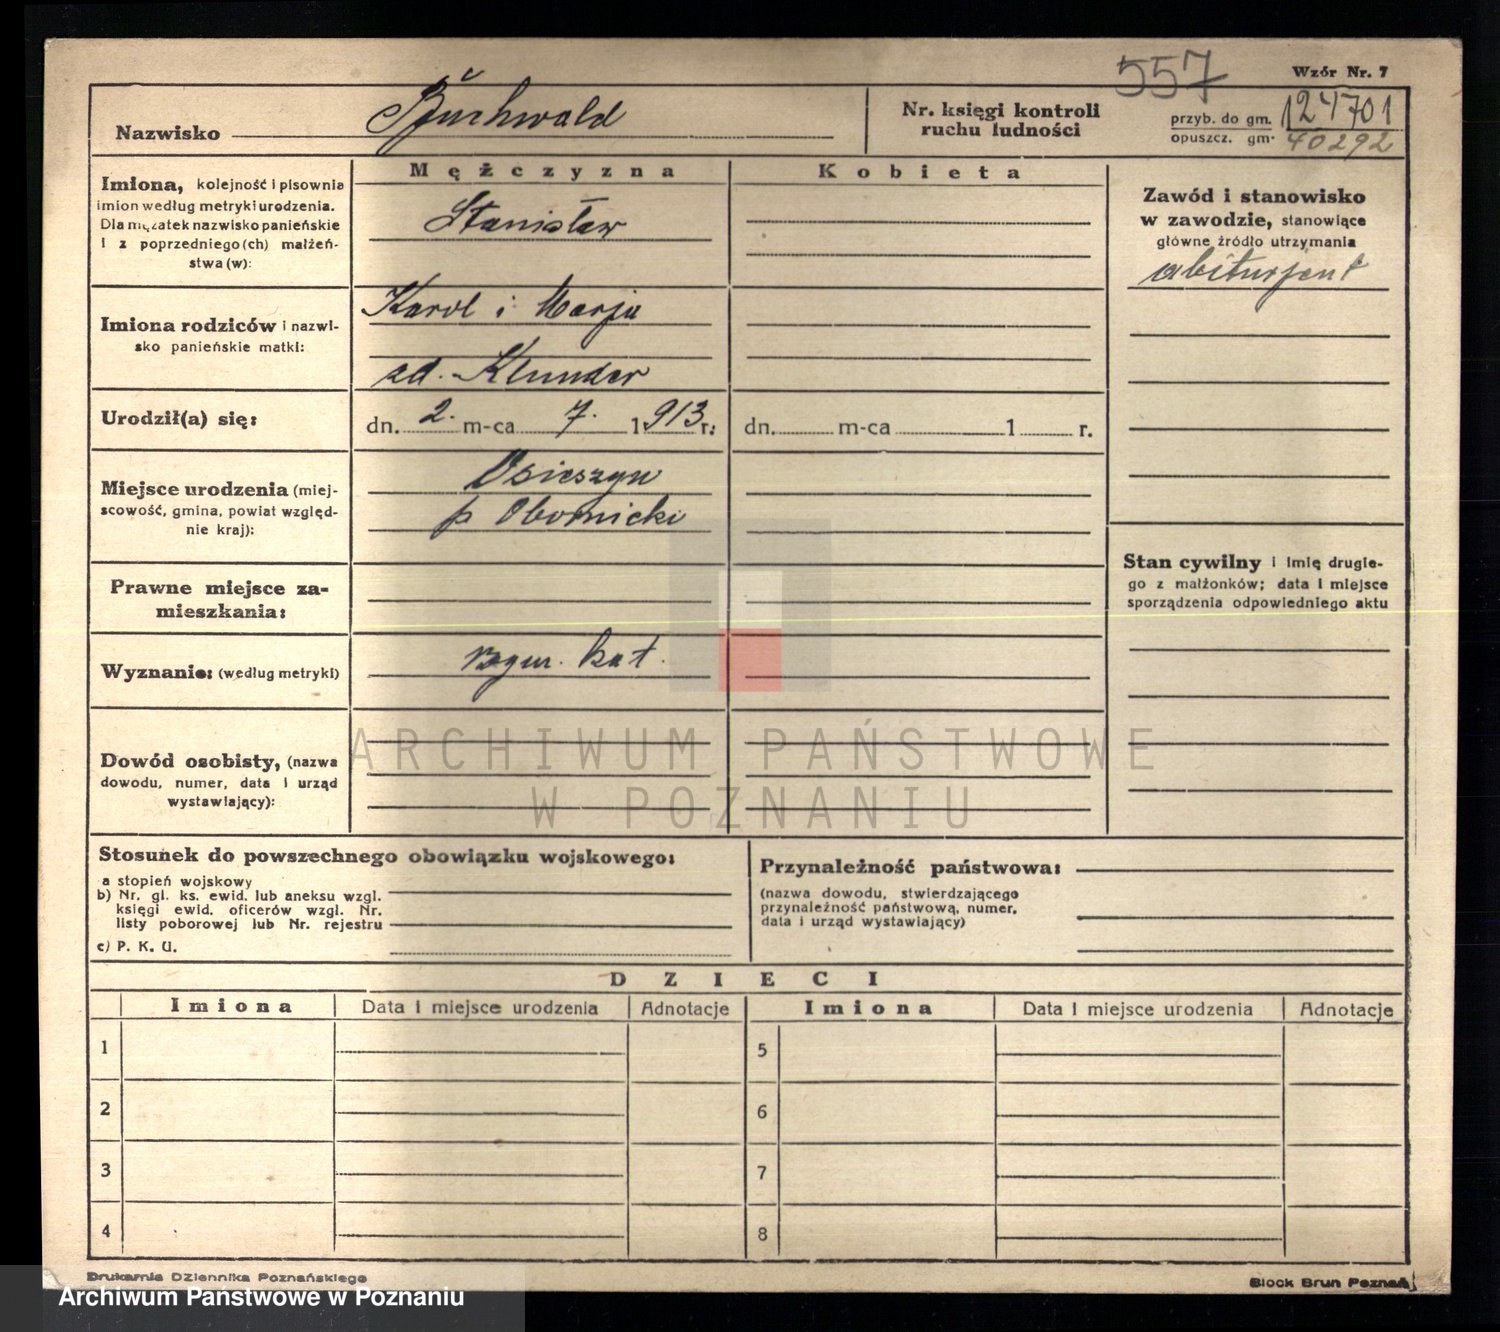 557
Wzór Nr. 7
Nazwisko Buchwald
Nr. księgi kontroli
ruchu ludności
przyb. do gm. 124701
opuszcz. gm. 40292
Mężczyzna
Kobieta
Imiona, kolejność i pisownia
imion według metryki urodzenia.
Dla mężatek nazwisko panieńskie
i z poprzedniego (ch) małżeń-
stwa (w):
Stanisław
Zawód i stanowisko
w zawodzie, stanowiące
główne źródło utrzymania
abiturjent
Imiona rodziców i nazwi-
sko panieńskie matki:
Karol i Marja
zd. Klunder
Urodził(a) się:
dn. 2. m-ca 7. 1913 r.
dn. m-ca 1 r.
Miejsce urodzenia (miej-
scowość, gmina, powiat względ-
nie kraj):
Osieszyn
p Obornicki
Stan cywilny i imię drugie-
go z małżonków; data i miejsce
sporządzenia odpowiedniego aktu
Prawne miejsce za-
mieszkania:
Wyznanie: (według metryki)
rzym. kat.
Dowód osobisty, (nazwa
dowodu, numer, data i urząd
wystawiający):
ARCHIWUM PAŃSTWOWE
W POZNANIU
Stosunek do powszechnego obowiązku wojskowego:
a stopień wojskowy
b) Nr. gl. ks. ewid. lub aneksu wzgl.
księgi ewid. oficerów wzgl. Nr.
listy poborowej lub Nr. rejestru
c) P. K. U.
Przynależność państwowa:
(nazwa dowodu, stwierdzającego
przynależność państwową, numer,
data i urząd wystawiający)
DZIECI
Imiona Data i miejsce urodzenia Adnotacje Imiona Data i miejsce urodzenia Adnotacje
1 5
2 6
3 7
4 8
Drukarnia Dziennika Poznańskiego
Block Brun Poznań
Archiwum Państwowe w Poznaniu